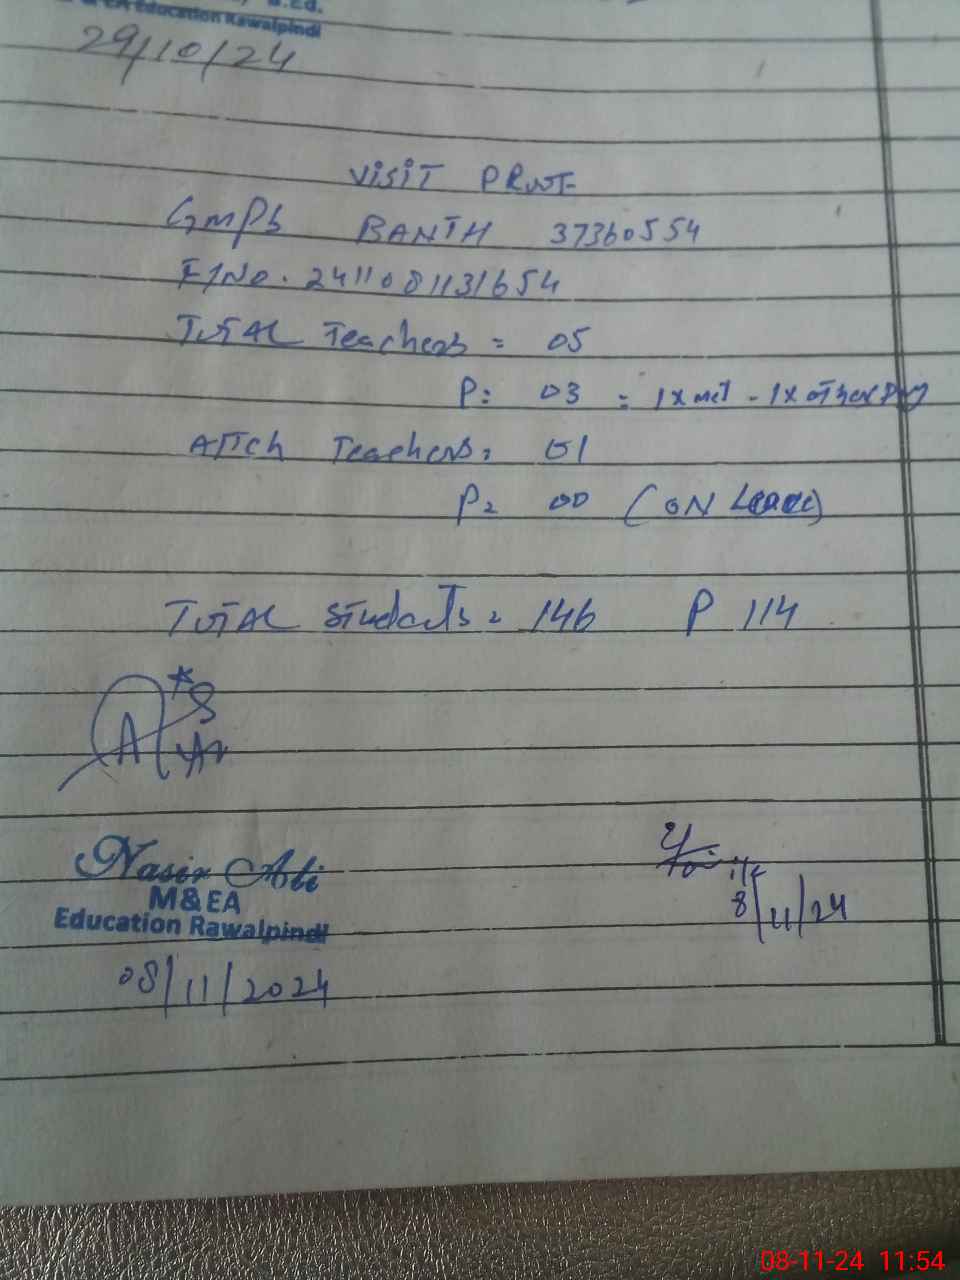 B.Ed.
& EA Education Rawalpindi
29/10/24
VISIT PROOF
GMPS BANTH 37360554
F/No. 2411081131654
TOTAL Teachers = 05
P: 03 = 1 x - 1 x other
ATTCh Teachers: 01
P= 00 (ON Leave)
TOTAL Students = 146 P 114
Nasir Ali
M&EA
Education Rawalpindi
08/11/2024
8/11/24
08-11-24 11:54